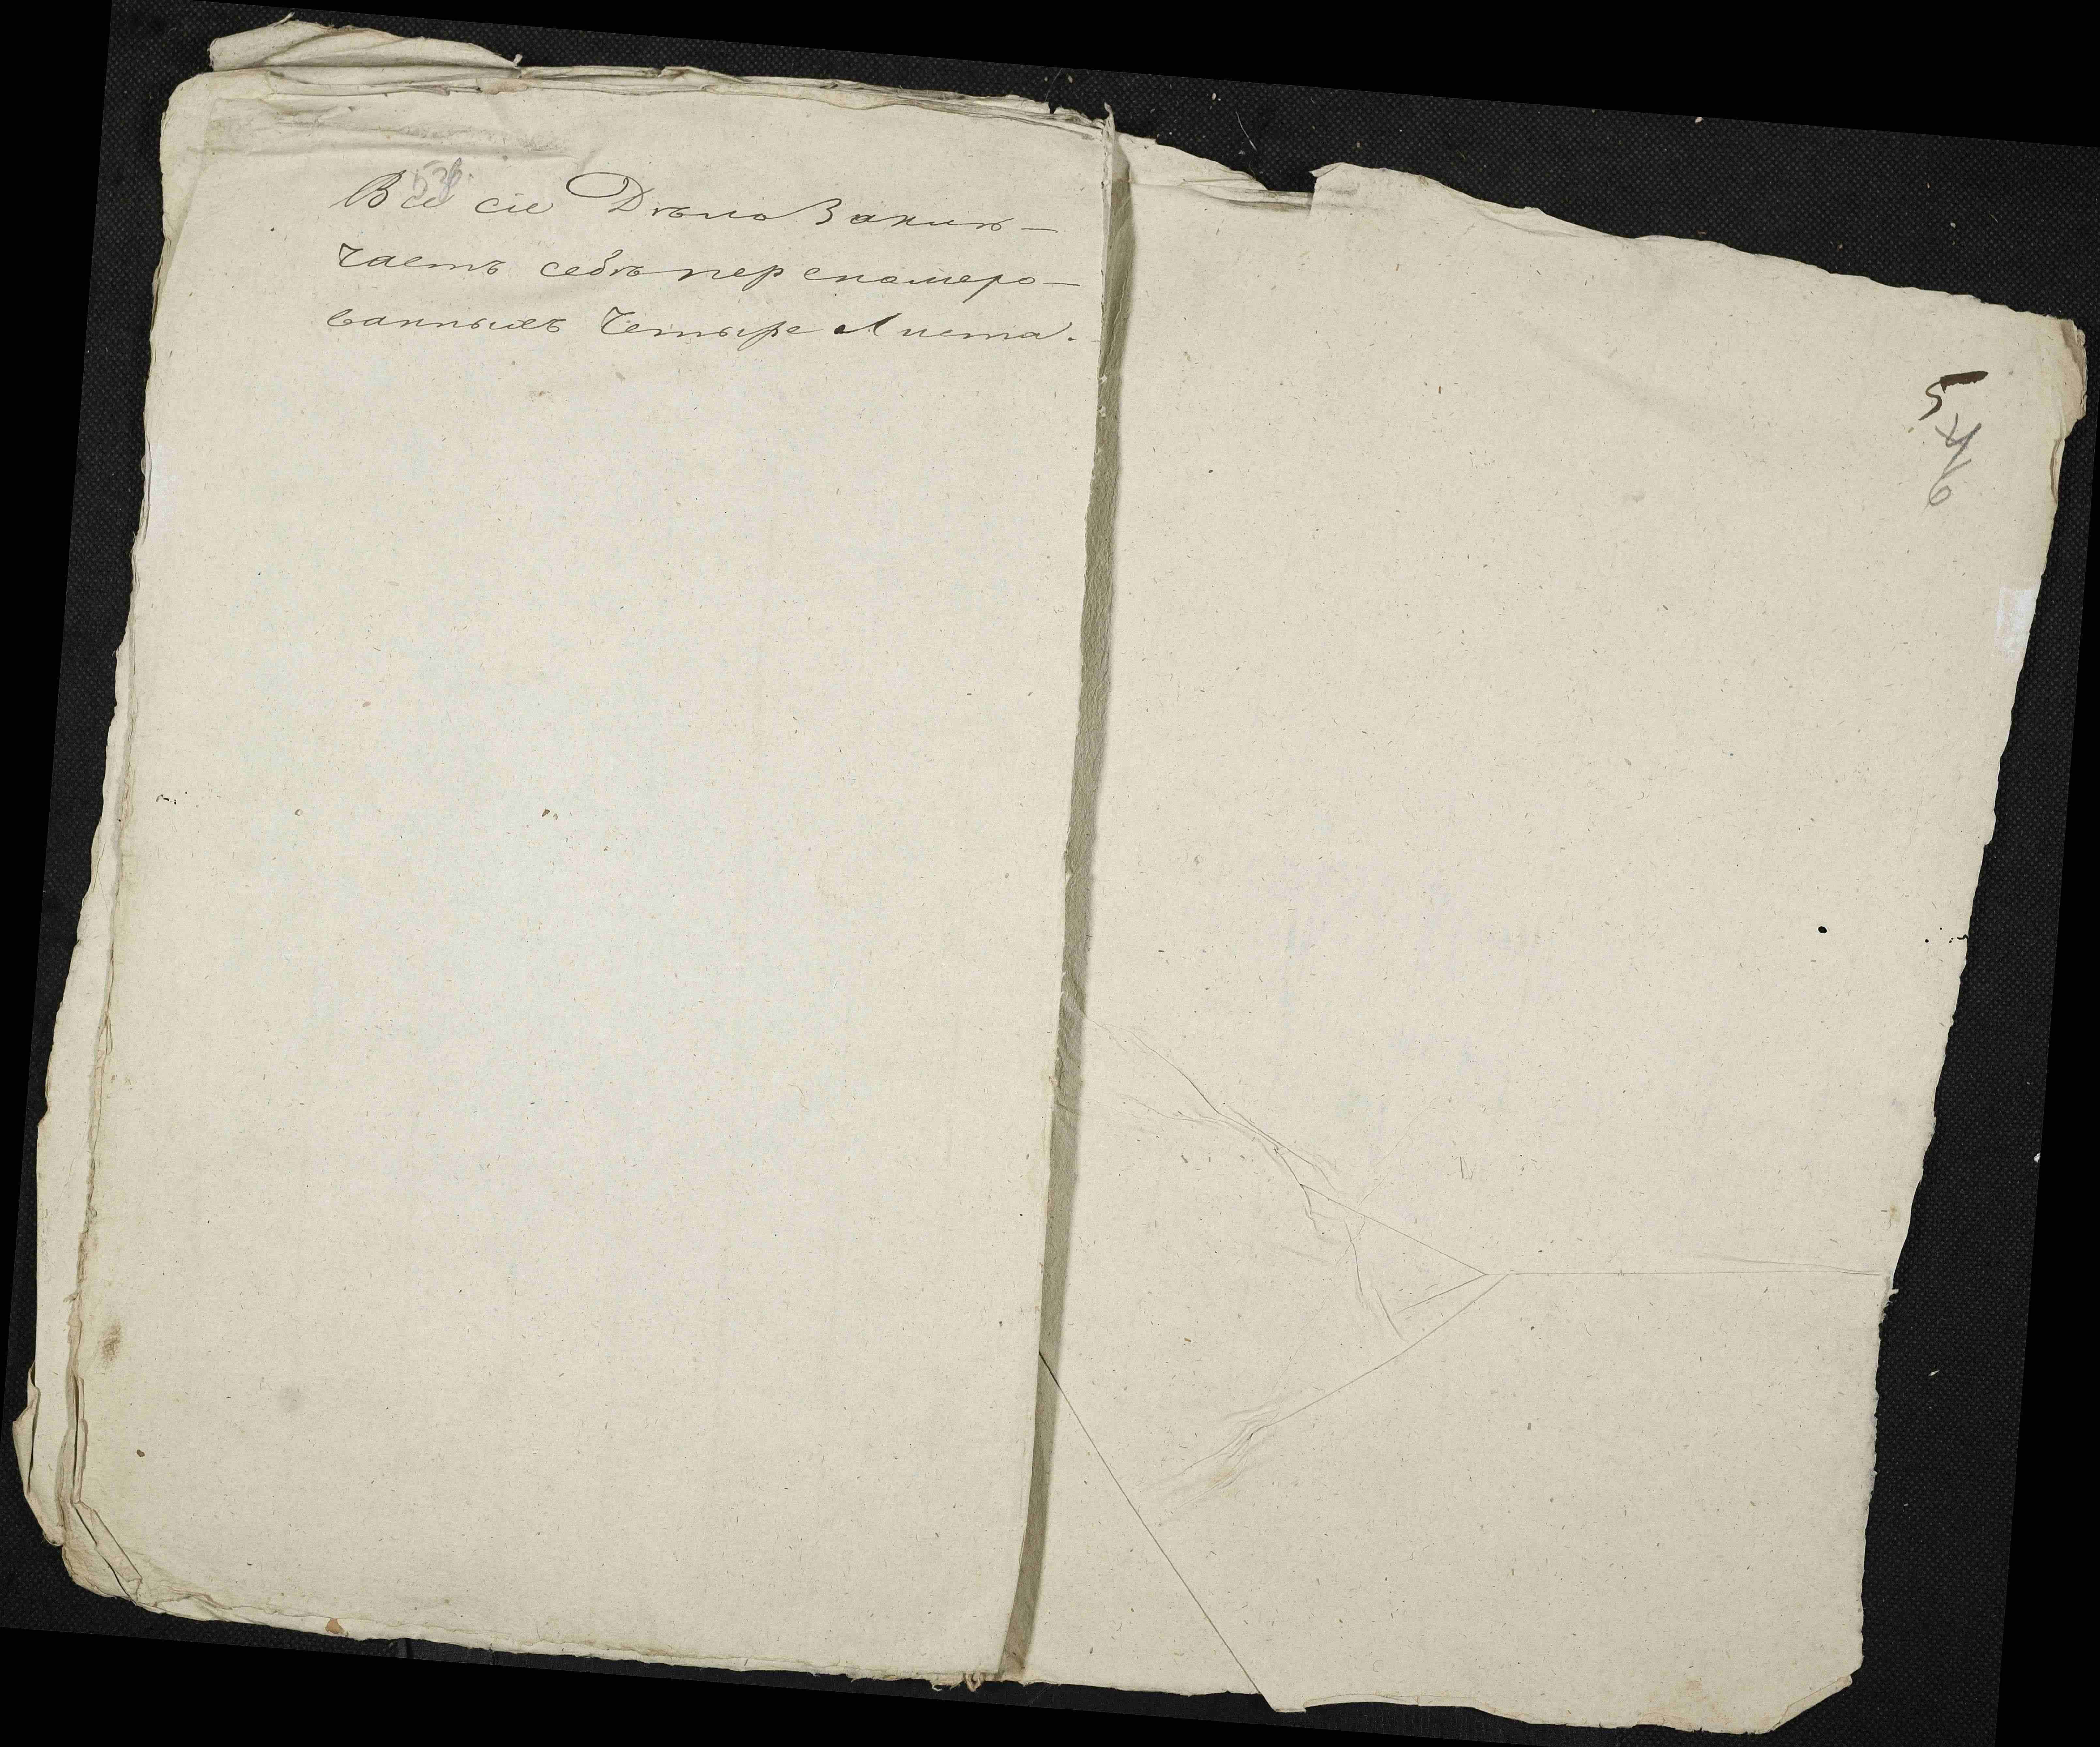 Все сіе Дѣло Заклю-
чаетъ себѣ пер снамеро-
ванныхъ Четыре Листа.
5
4
6